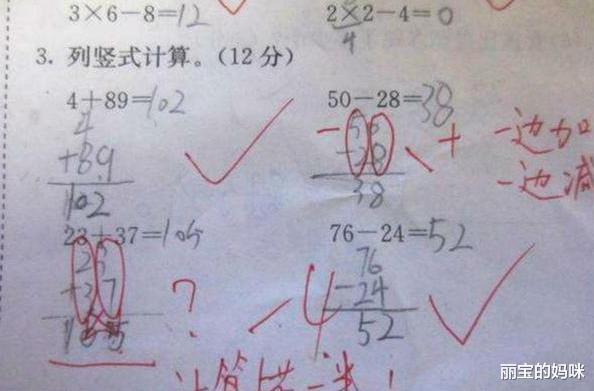 3×6－8=12
2×2－4=0
4
3. 列竖式计算。(12分)
4＋89=102
50－28=38
4
+89
102
－
50
－28
38
＋
一边加
一边减
23＋37=105
76－24=52
23
+37
105
?
－4
76
－24
52
丽宝的妈咪